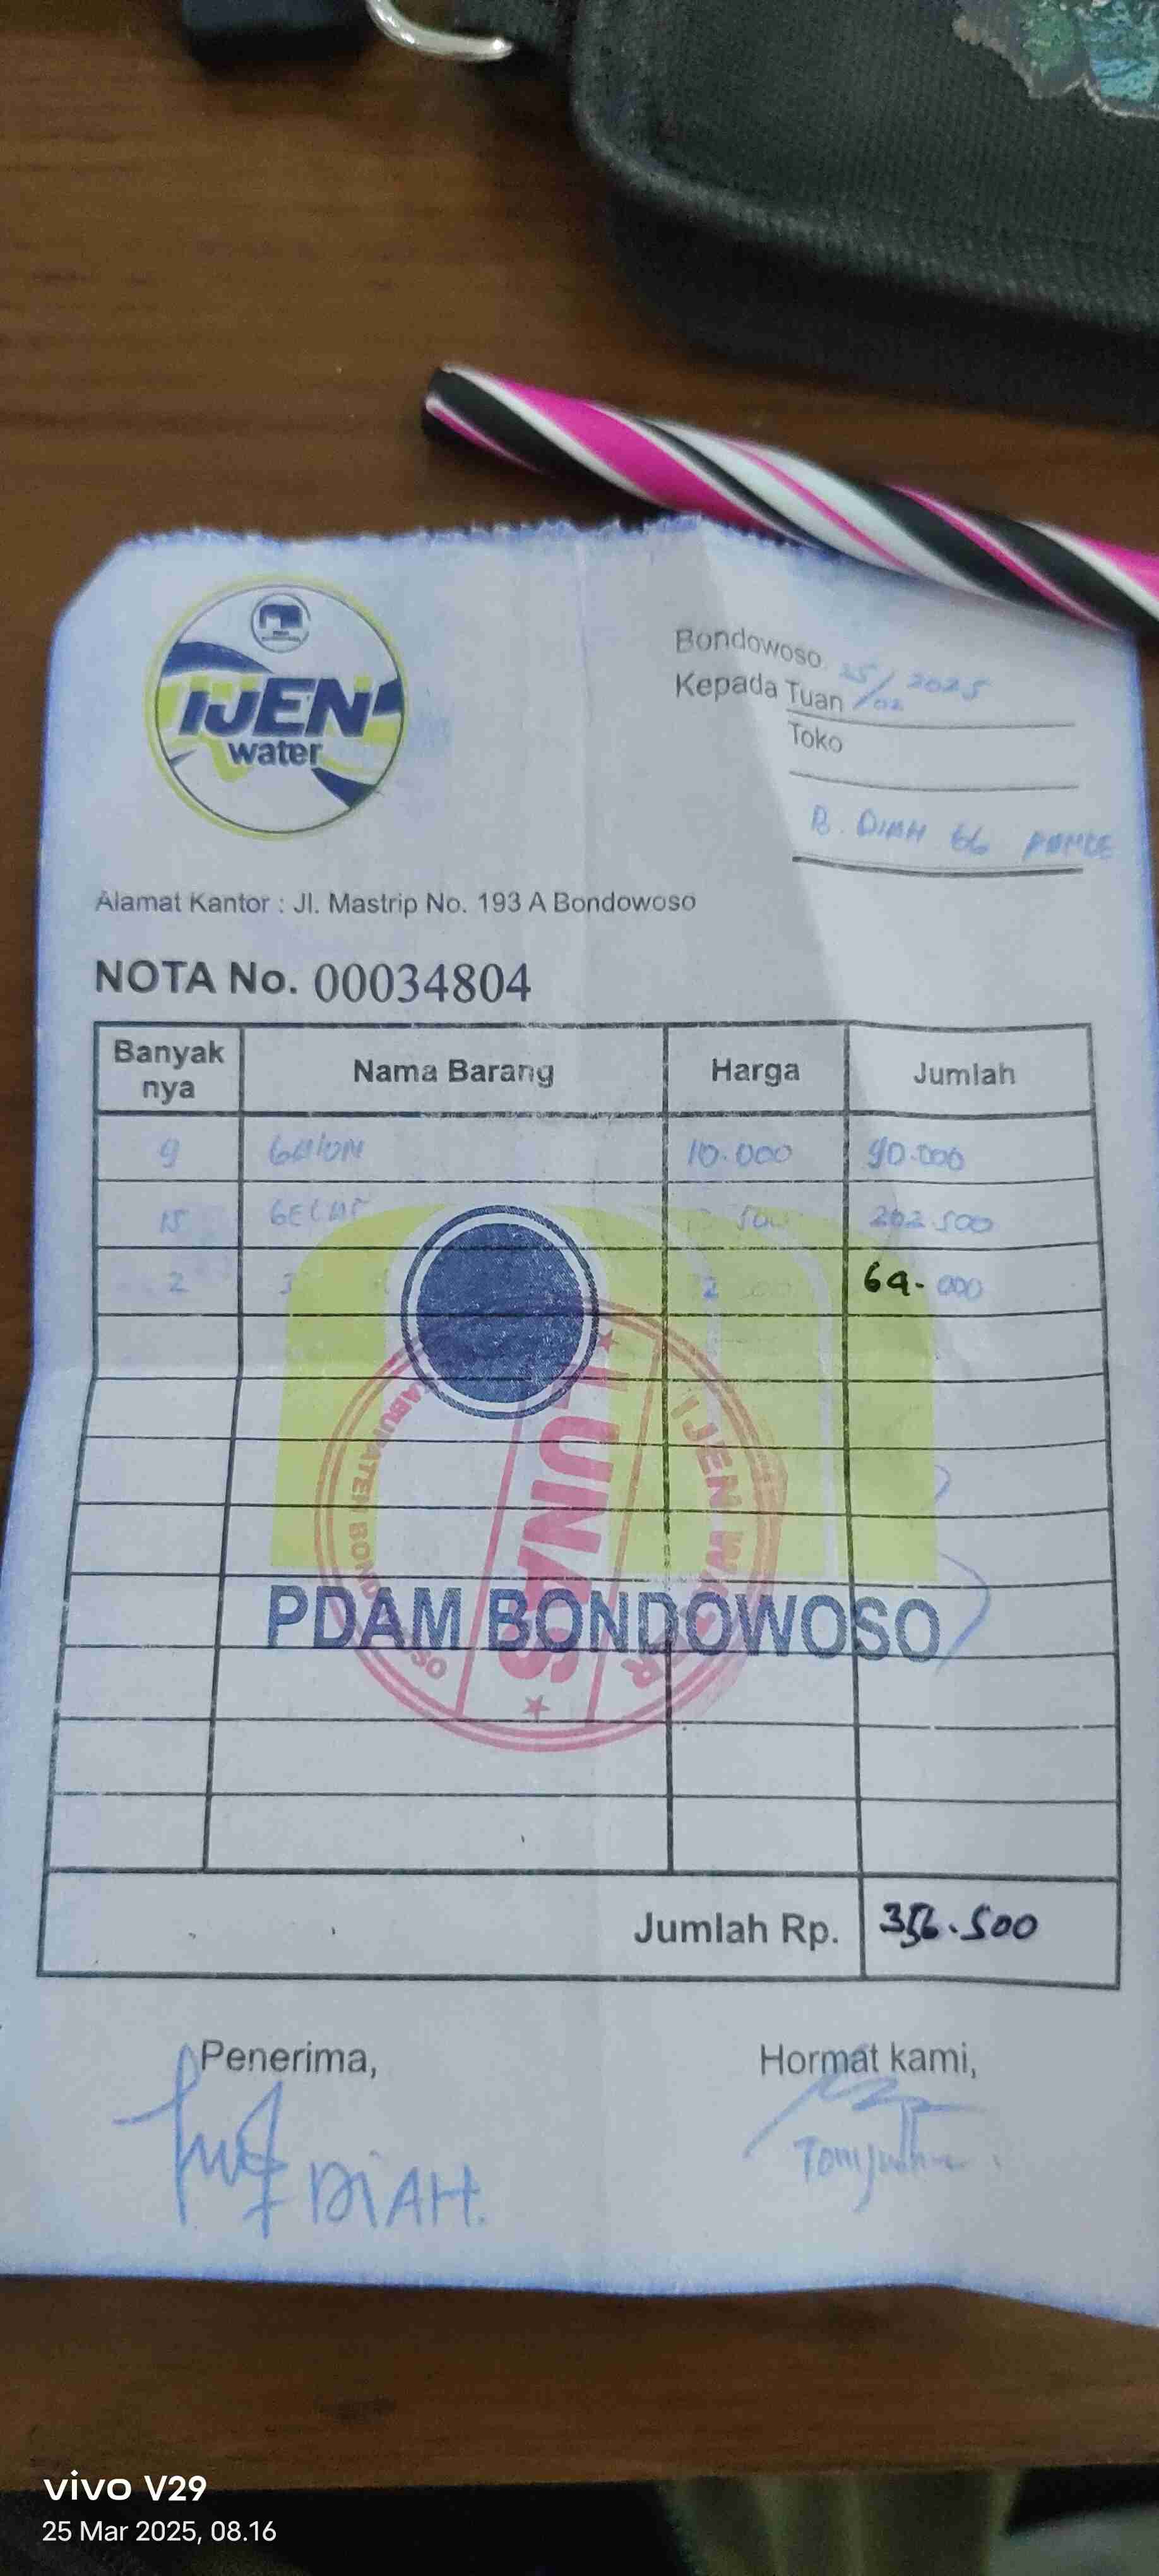 IJEN
water
Bondowoso, 25/02 2025
Kepada Tuan
Toko
B. DIAH
Alamat Kantor : Jl. Mastrip No. 193 A Bondowoso
NOTA No. 00034804
Banyak nya Nama Barang Harga Jumlah
9 GALON 10.000 90.000
15 GELAS 202.500
2 64.000
LUNAS
IJEN WATER
KABUPATEN BONDOWOSO
PDAM BONDOWOSO
Jumlah Rp. 356.500
Penerima, Hormat kami,
DIAH.
vivo V29
25 Mar 2025, 08.16